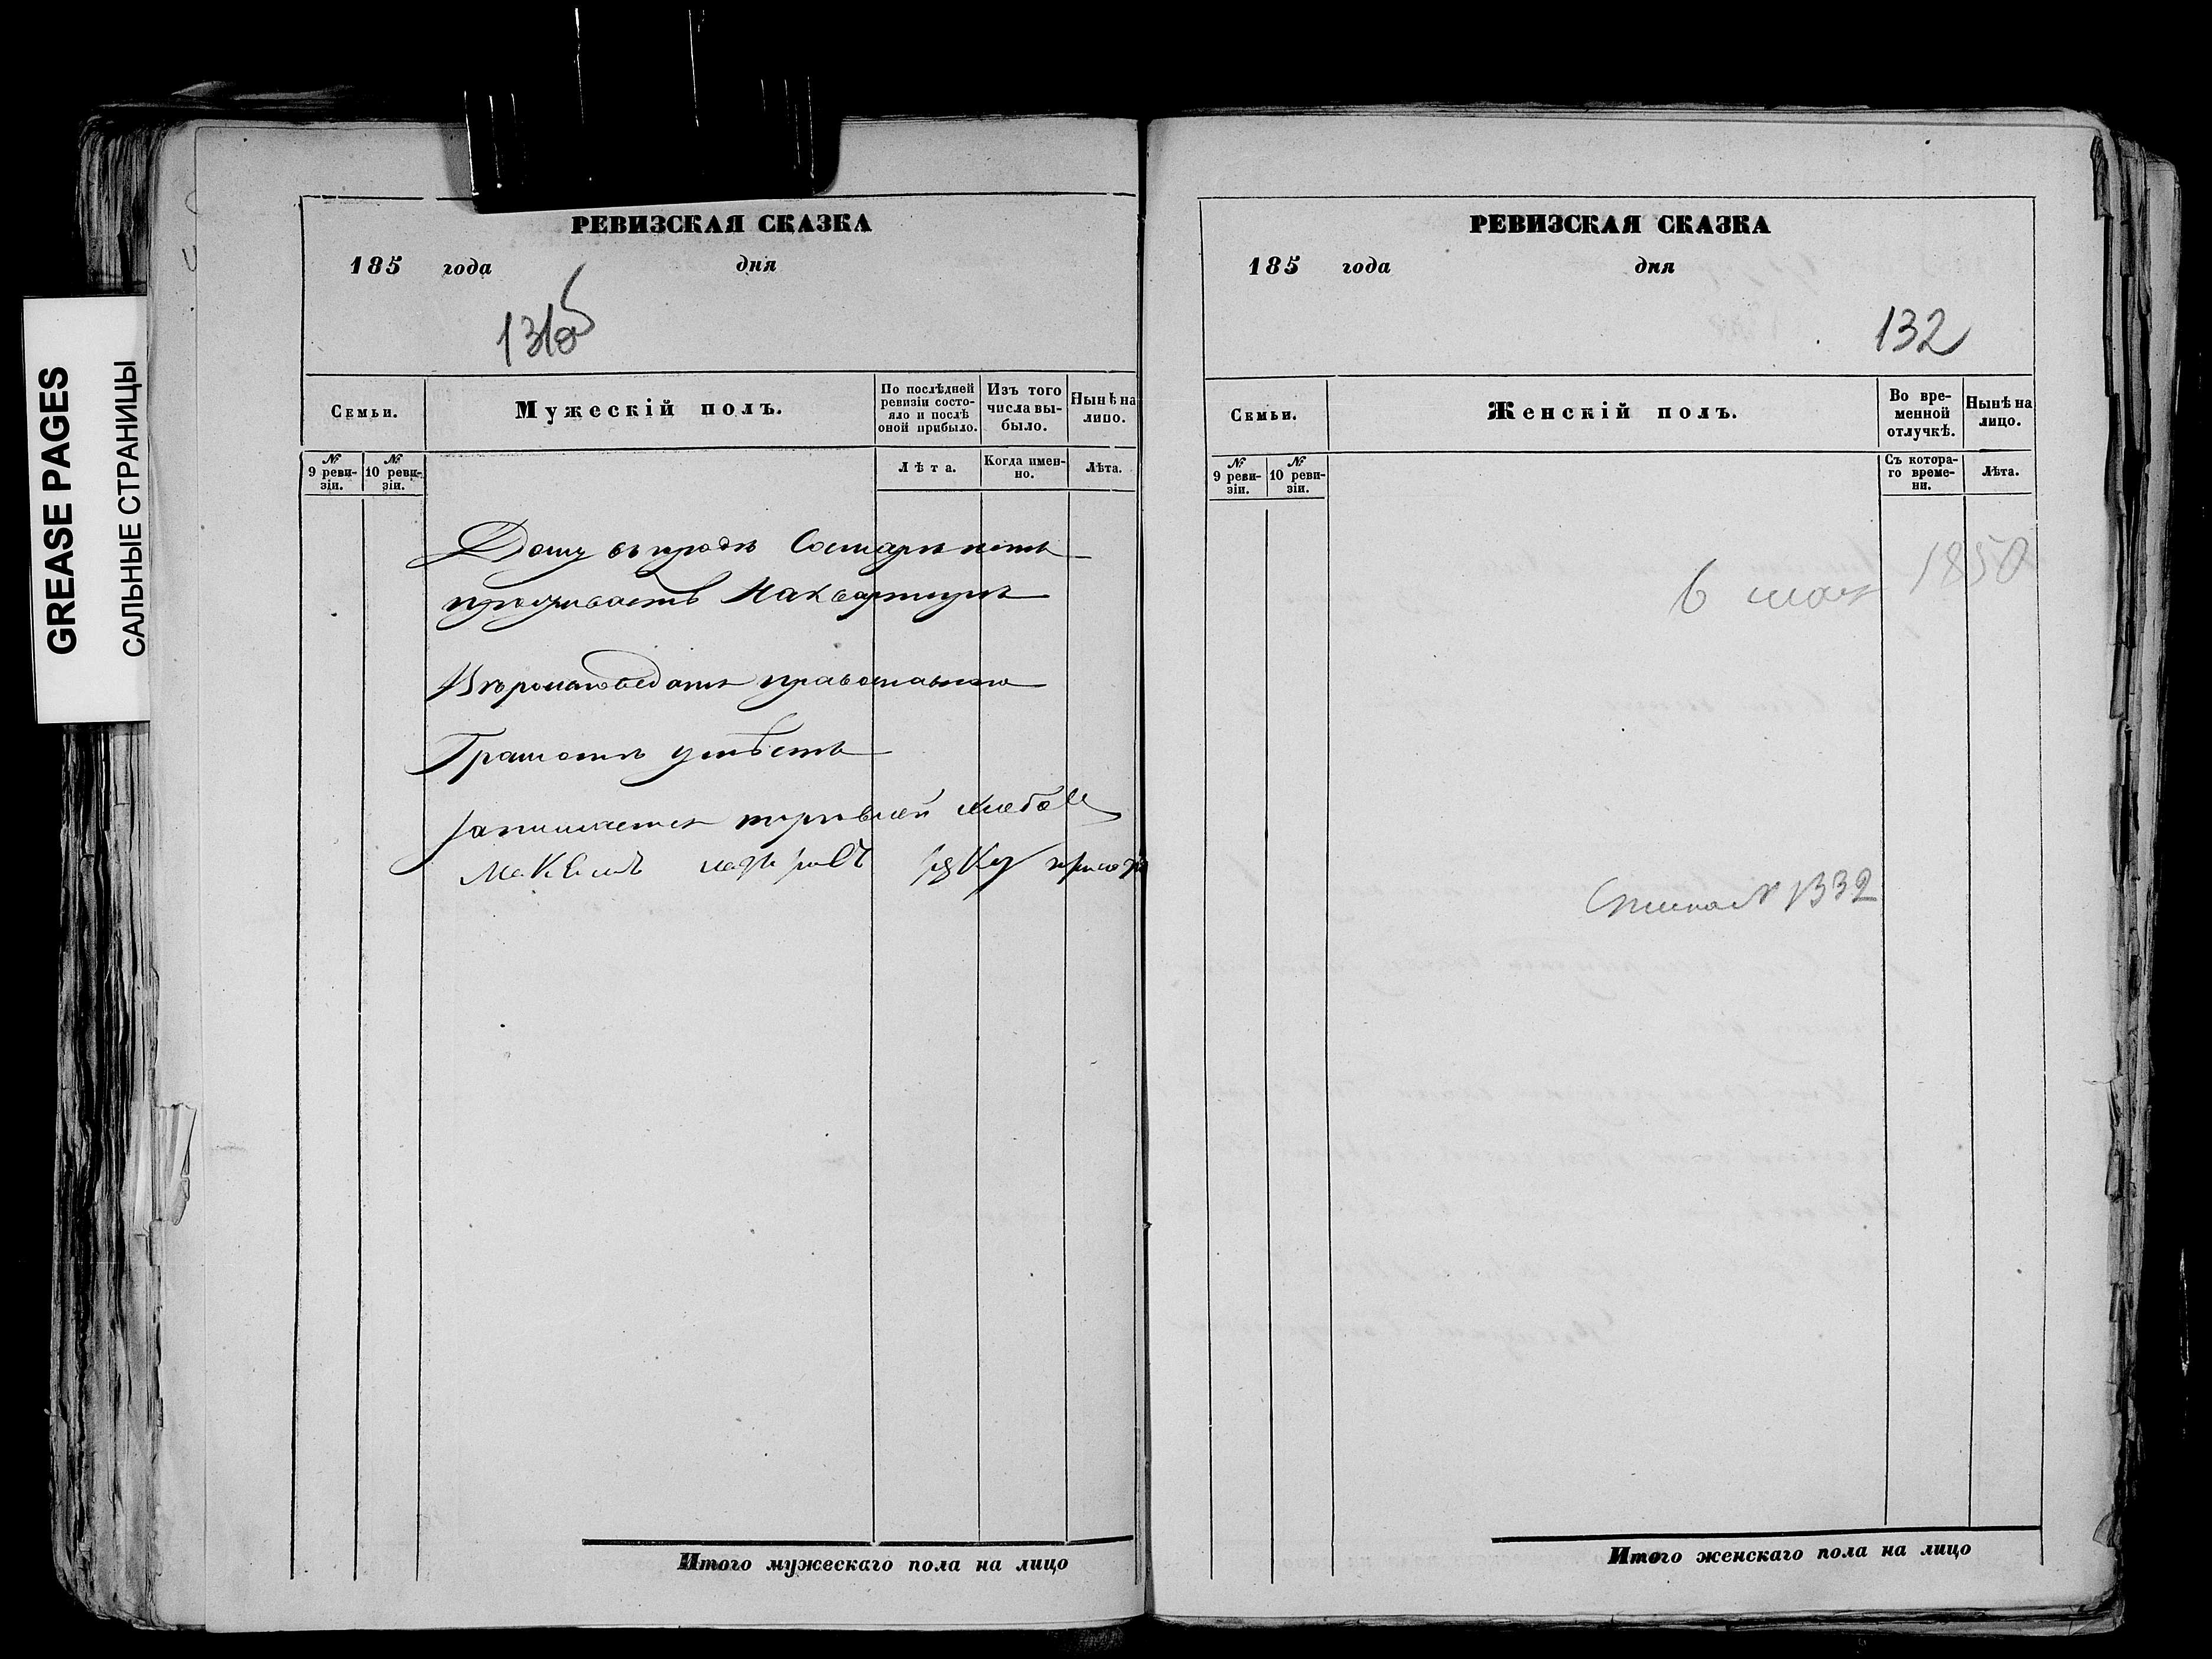 GREASE PAGES
САЛЬНЫЕ СТРАНИЦЫ
РЕВИЗСКАЯ СКАЗКА
185 года дня
131об
Семьи.
Мужескій полъ.
По послѣдней ревизіи состояло и послѣ оной прибыло.
Изъ того числа выбыло.
Нынѣ на лицо.
№ 9 ревизіи.
№ 10 ревизіи.
Лѣта.
Когда именно.
Лѣта.
Дому въ городѣ Самарѣ нетъ
проживаетъ на квартире
Вѣроисповеданія православнаго
Грамотѣ умѣетъ
занимается торговлей хлебом
Максимъ руку
Итого мужескаго пола на лицо
РЕВИЗСКАЯ СКАЗКА
185 года дня
132
Семьи.
Женскій полъ.
Во временной отлучкѣ.
Нынѣ на лицо.
№ 9 ревизіи.
№ 10 ревизіи.
Съ котораго времени.
Лѣта.
6 мая 1858
№ 1332
Итого женскаго пола на лицо